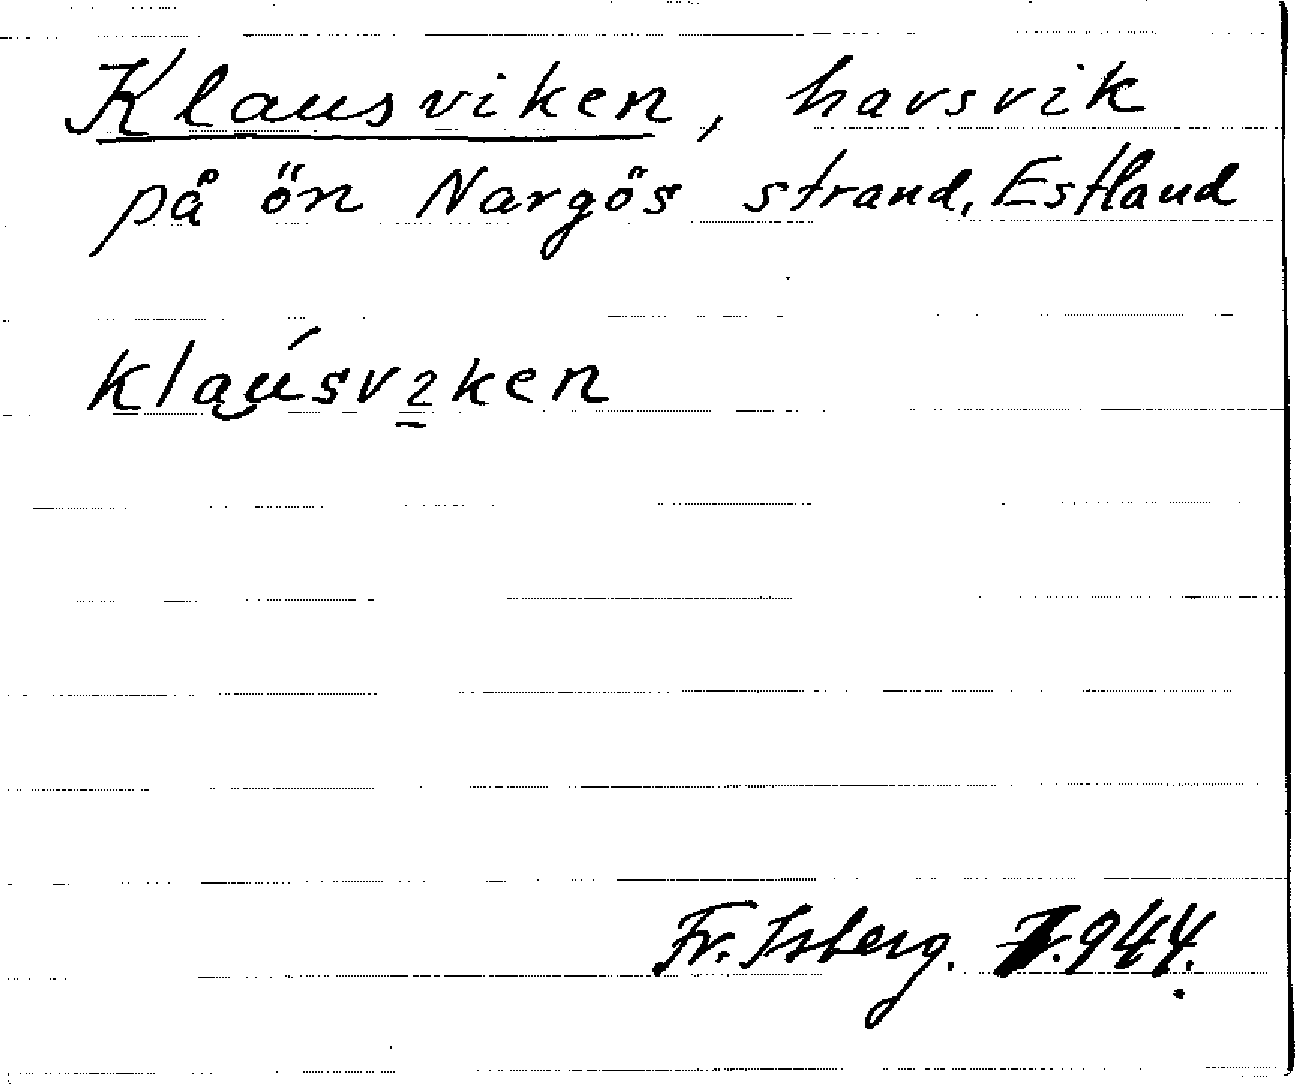 Klausviken, havsvik
på ön Nargös strand, Estland
klaú̯sv2ken
Fr. Isberg. 1944.